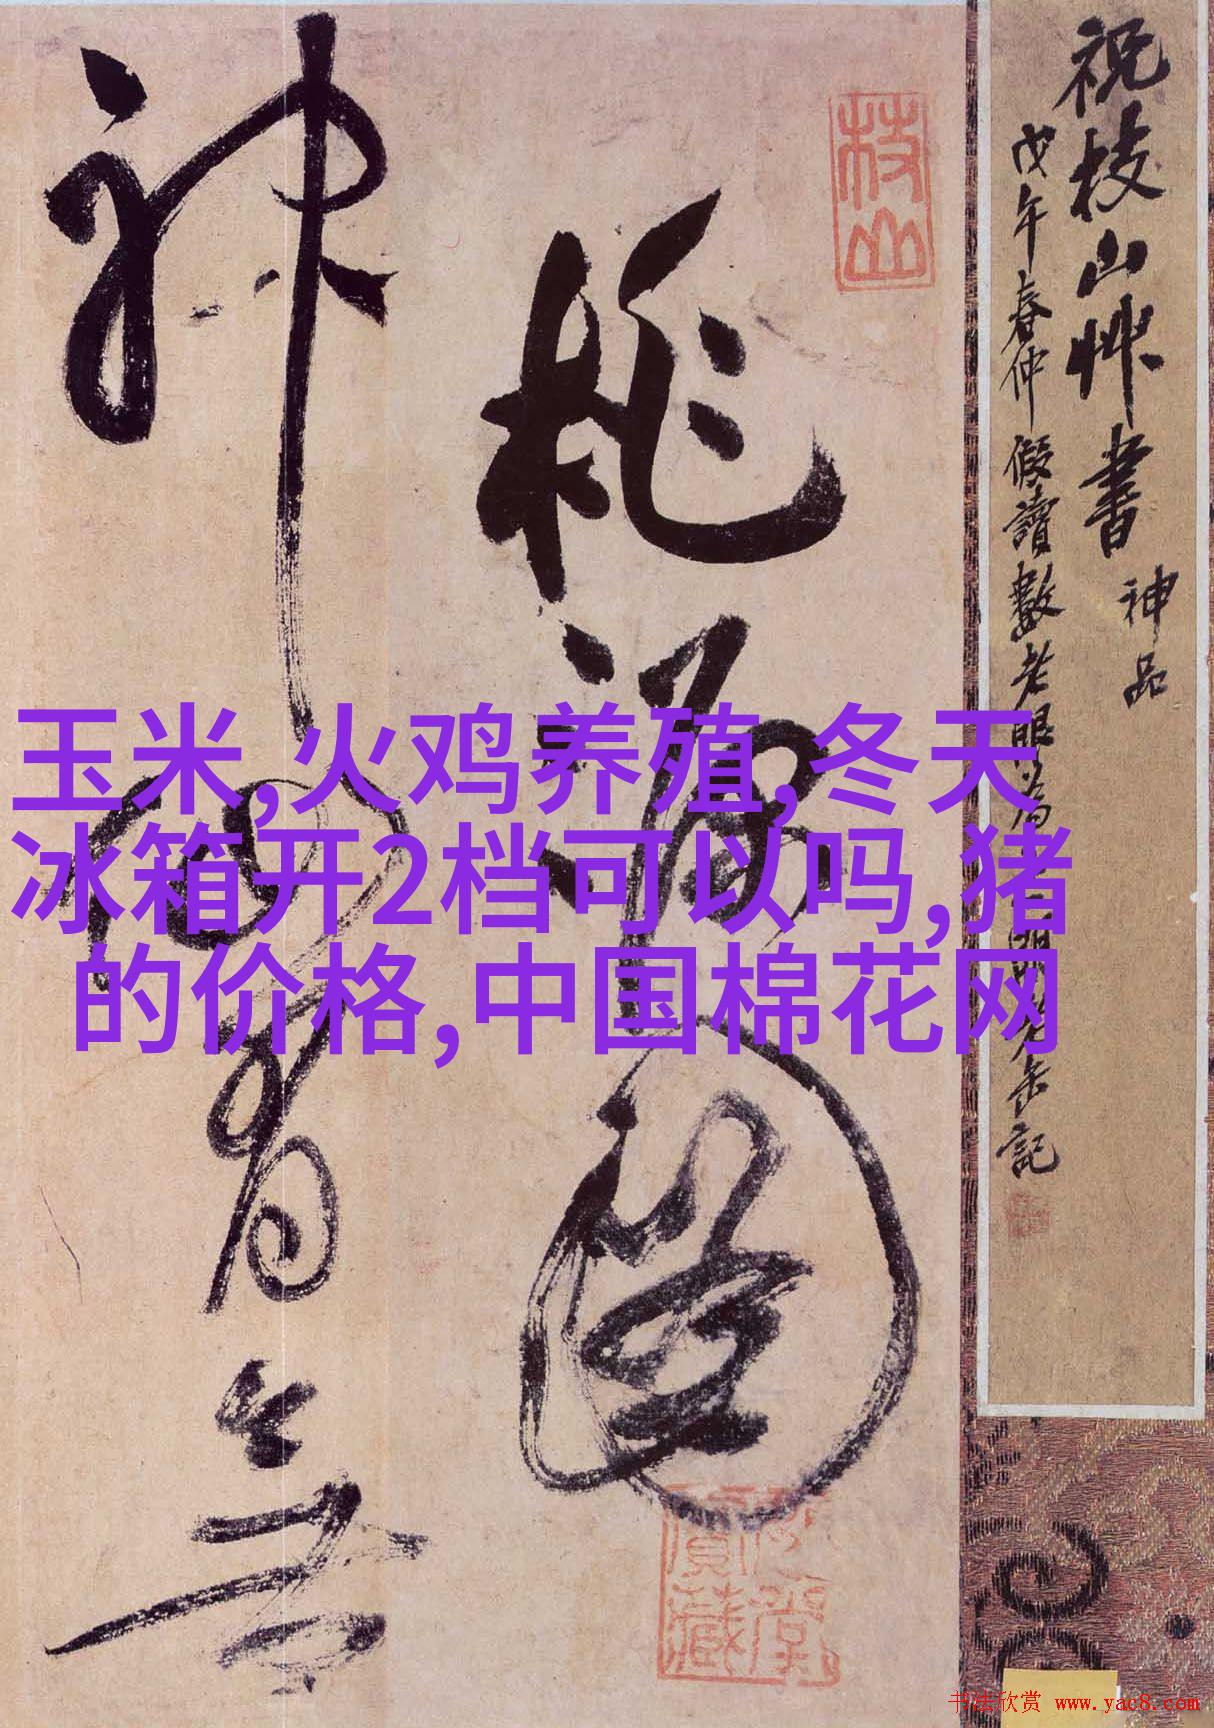 祝枝山草書 神品
戊午春仲假讀數老眼為
缶記
枝山
桃源圖
神仙有無
賞藏
堂
玉米,火鸡养殖,冬天
冰箱开2档可以吗,猪
的价格,中国棉花网
书法欣赏 www.yac8.com